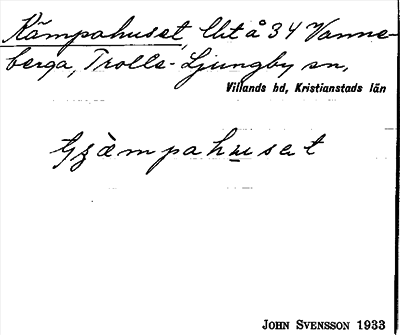 Kämpahuset, lht å 34 Vanne-
berga, Trolle-Ljungby sn,
Villands hd, Kristianstads län
John Svensson 1933